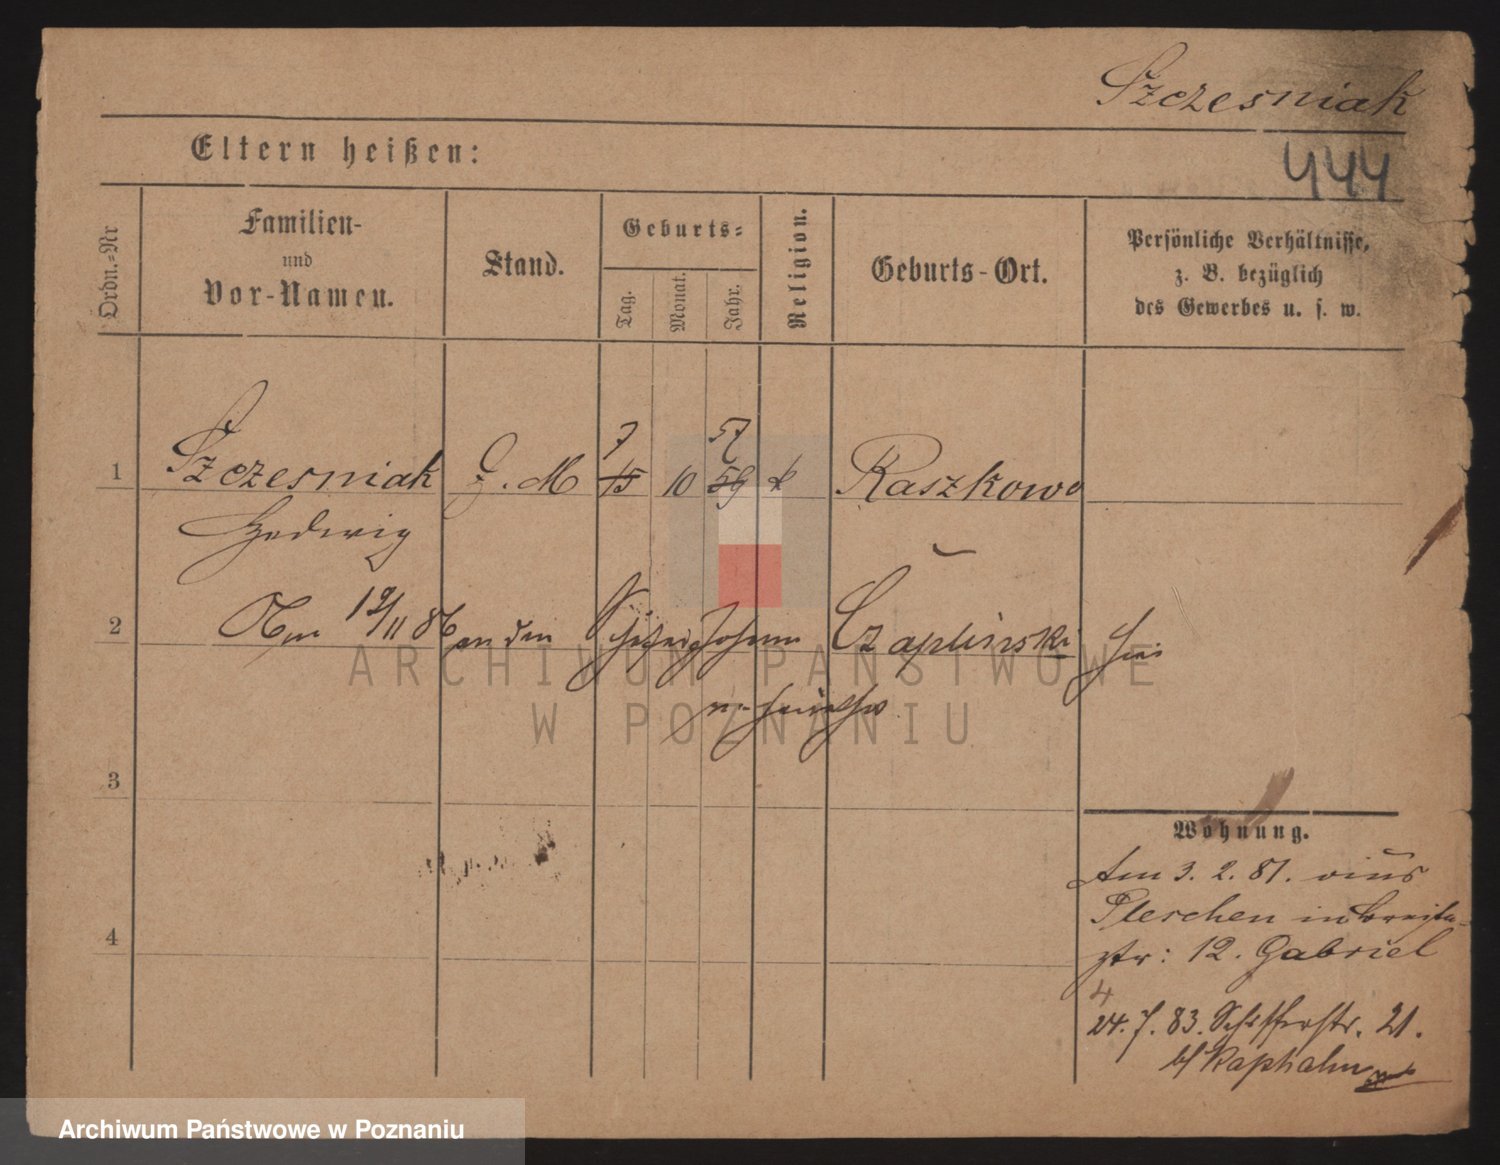 Szczesniak
444
Eltern heißen:
Ordn.-Nr
Familien-
und
Vor-Namen.
Stand.
Geburts-
Tag.
Monat.
Jahr.
Religion.
Geburts-Ort.
Persönliche Verhältnisse,
z. B. bezüglich
des Gewerbes u. s. w.
7 57
1 Szczesniak M 15 10 59 k Raszkowo
Hedwig
2 Am 19/11 86 an den Johann Czaplinski hier
3
Wohnung.
Am 3. 2. 81. aus
Pleschen in Breite-
str: 12. Gabriel
4
4
24. 7. 83. Schifferstr. 21.
b/ Raphalm
ARCHIWUM PAŃSTWOWE
W POZNANIU
Archiwum Państwowe w Poznaniu